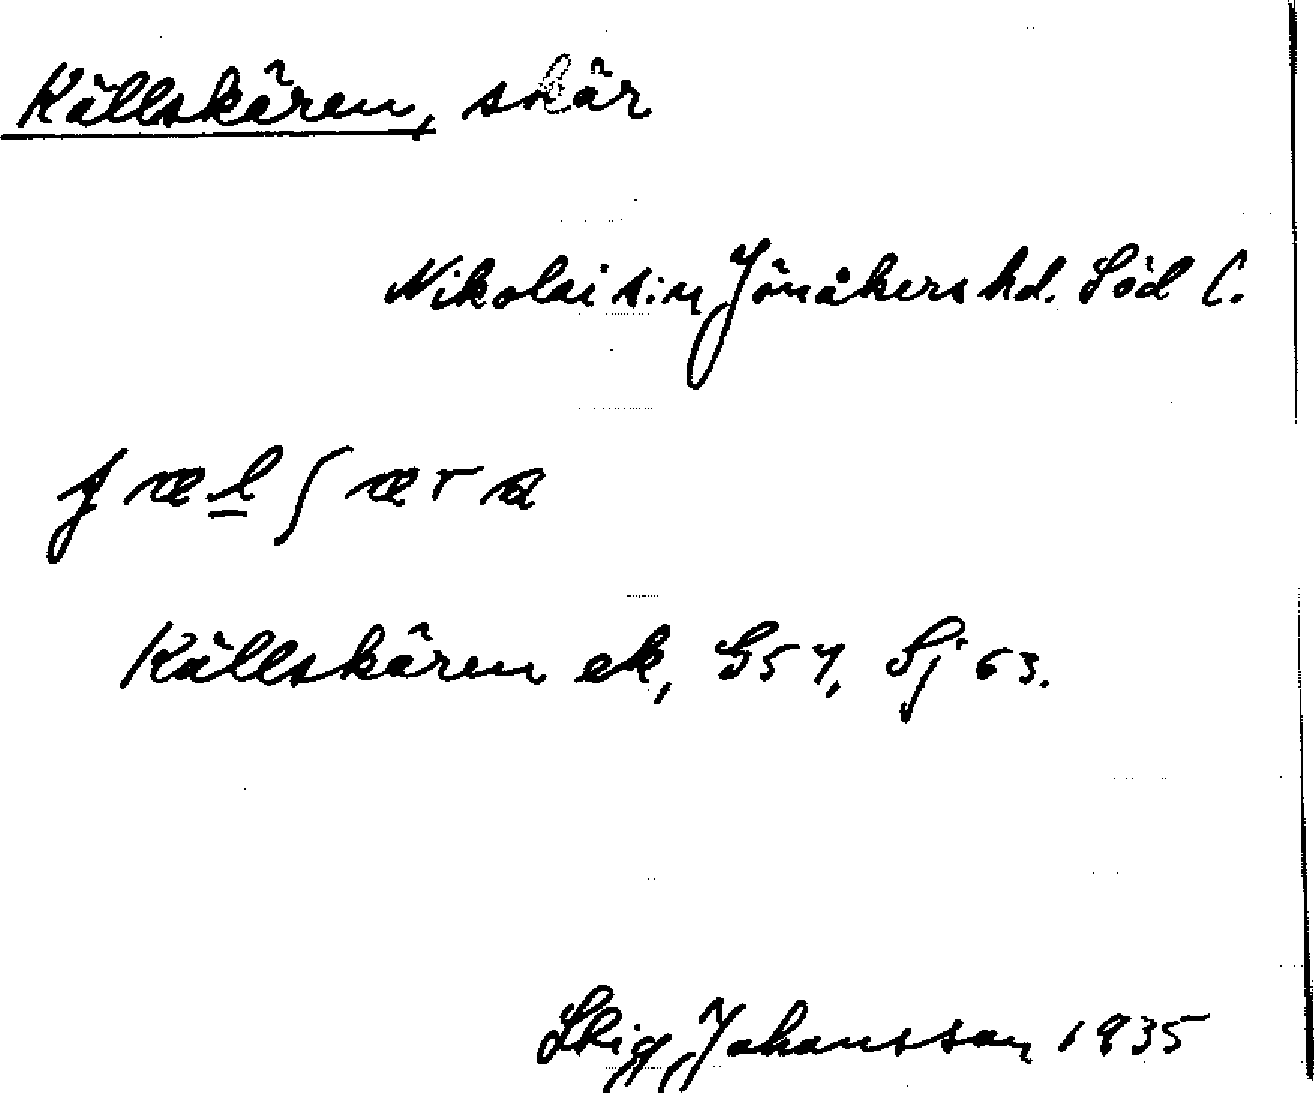 Källskären, skär
Nikolai s:n Jönåkers hd. Söd l.
Källskären ek, G57, Sj 63.
Skig Johansson 1935